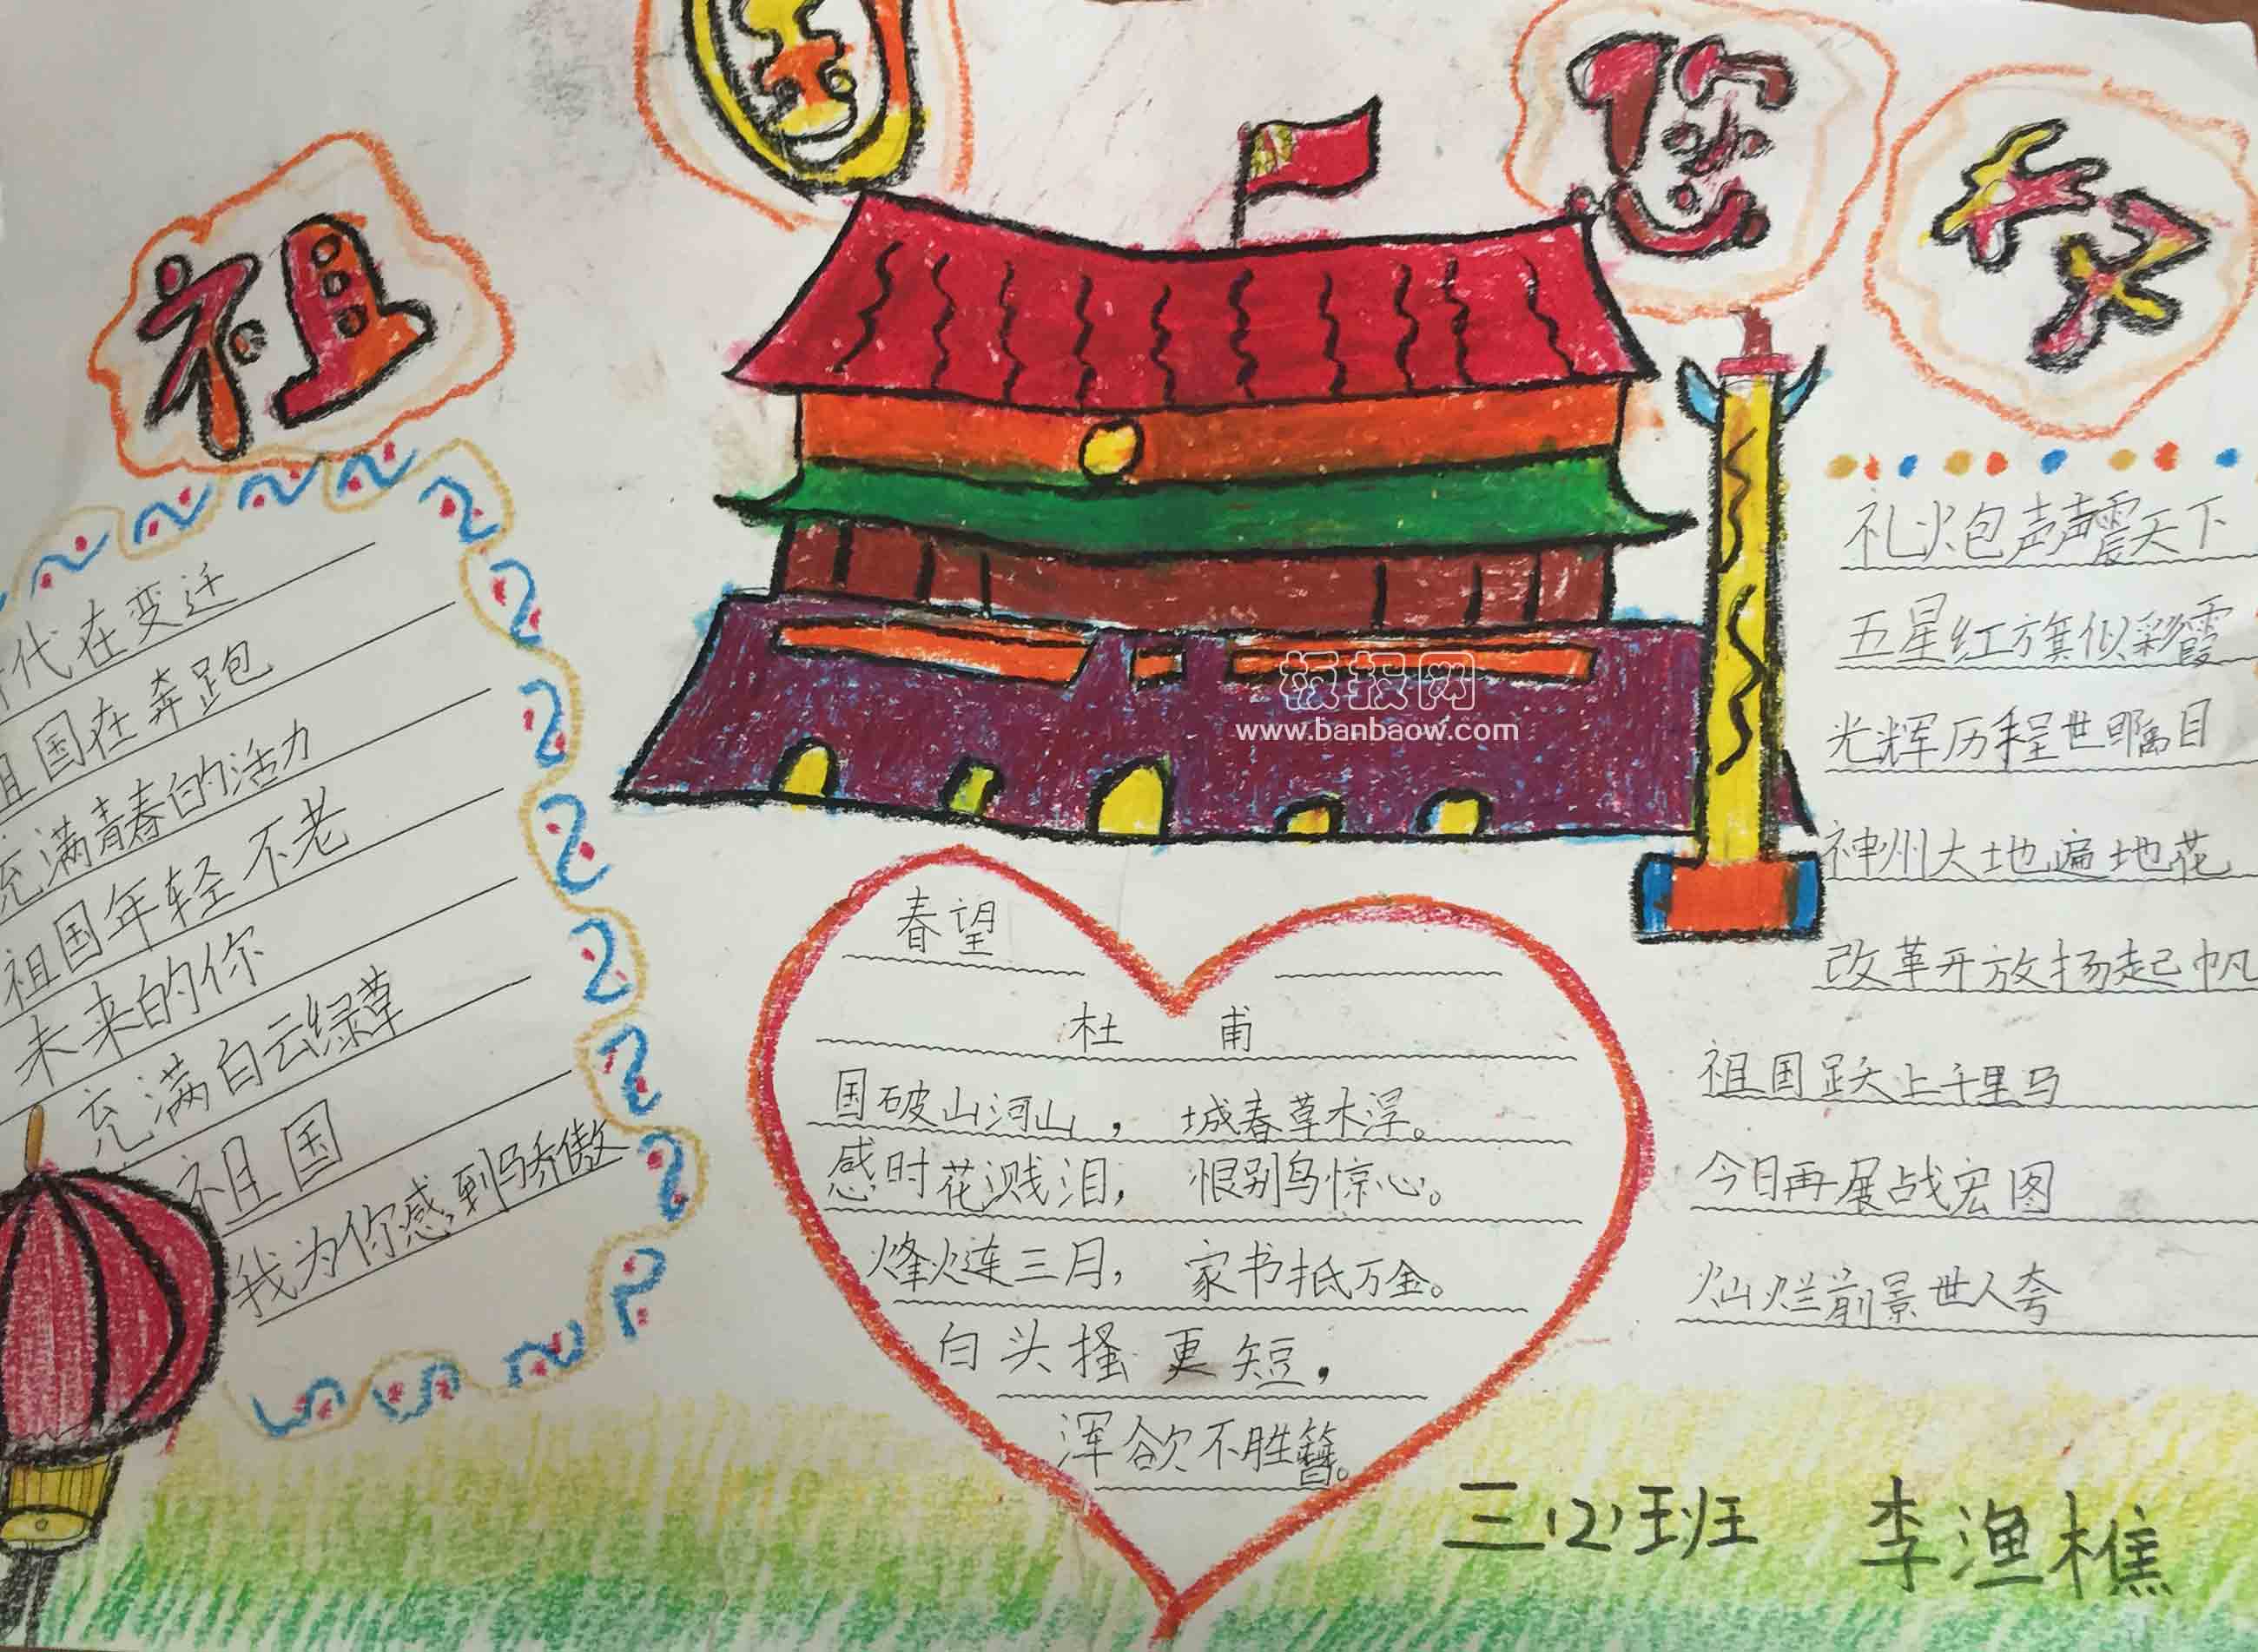 祖国您好
时代在变迁
祖国在奔跑
充满青春的活力
祖国年轻不老
未来的你
充满白云绿草
祖国
我为你感到骄傲
板报网
www.banbaow.com
春望
杜 甫
国破山河山，城春草木浑。
感时花溅泪，恨别鸟惊心。
烽火连三月，家书抵万金。
白头搔更短，
浑欲不胜簪。
礼炮声声震天下
五星红旗似彩霞
光辉历程世瞩目
神州大地遍地花
改革开放扬起帆
祖国跃上千里马
今日再展战宏图
灿烂前景世人夸
三(2)班 李渔樵